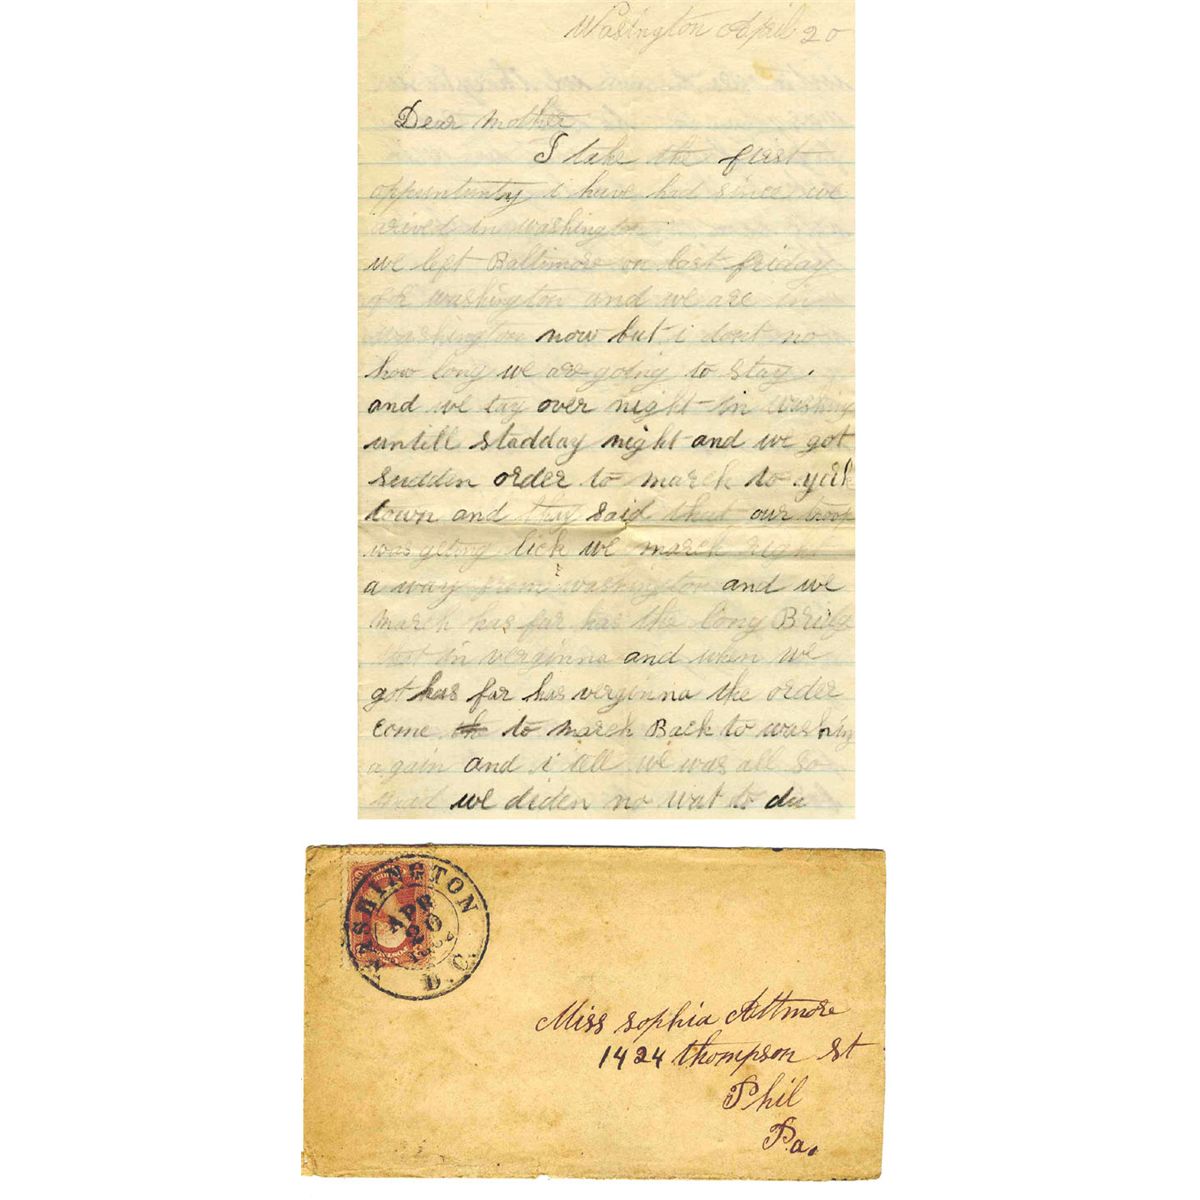 Wasington April 20
Dear Mother
I take the first
oppuntunty i have had since we
arived in washington
we left Baltimore on last friday
for washington and we are in
washington now but i dont no
how long we are going to stay.
and we tay over night in washing
untill stadday night and we got
sudden order to march to york
town and thay said that our troop
was geting lick we march right
a way from washington and we
march has far has the long Bridg
that in verginna and when we
got has far has verginna the order
come to march Back to washing
again and i tell we was all so
we diden no wat to du
WASHINGTON
APR
20
1862
D.C.
Miss sophia Attmore
1424 thompson st
Phil
Pa.